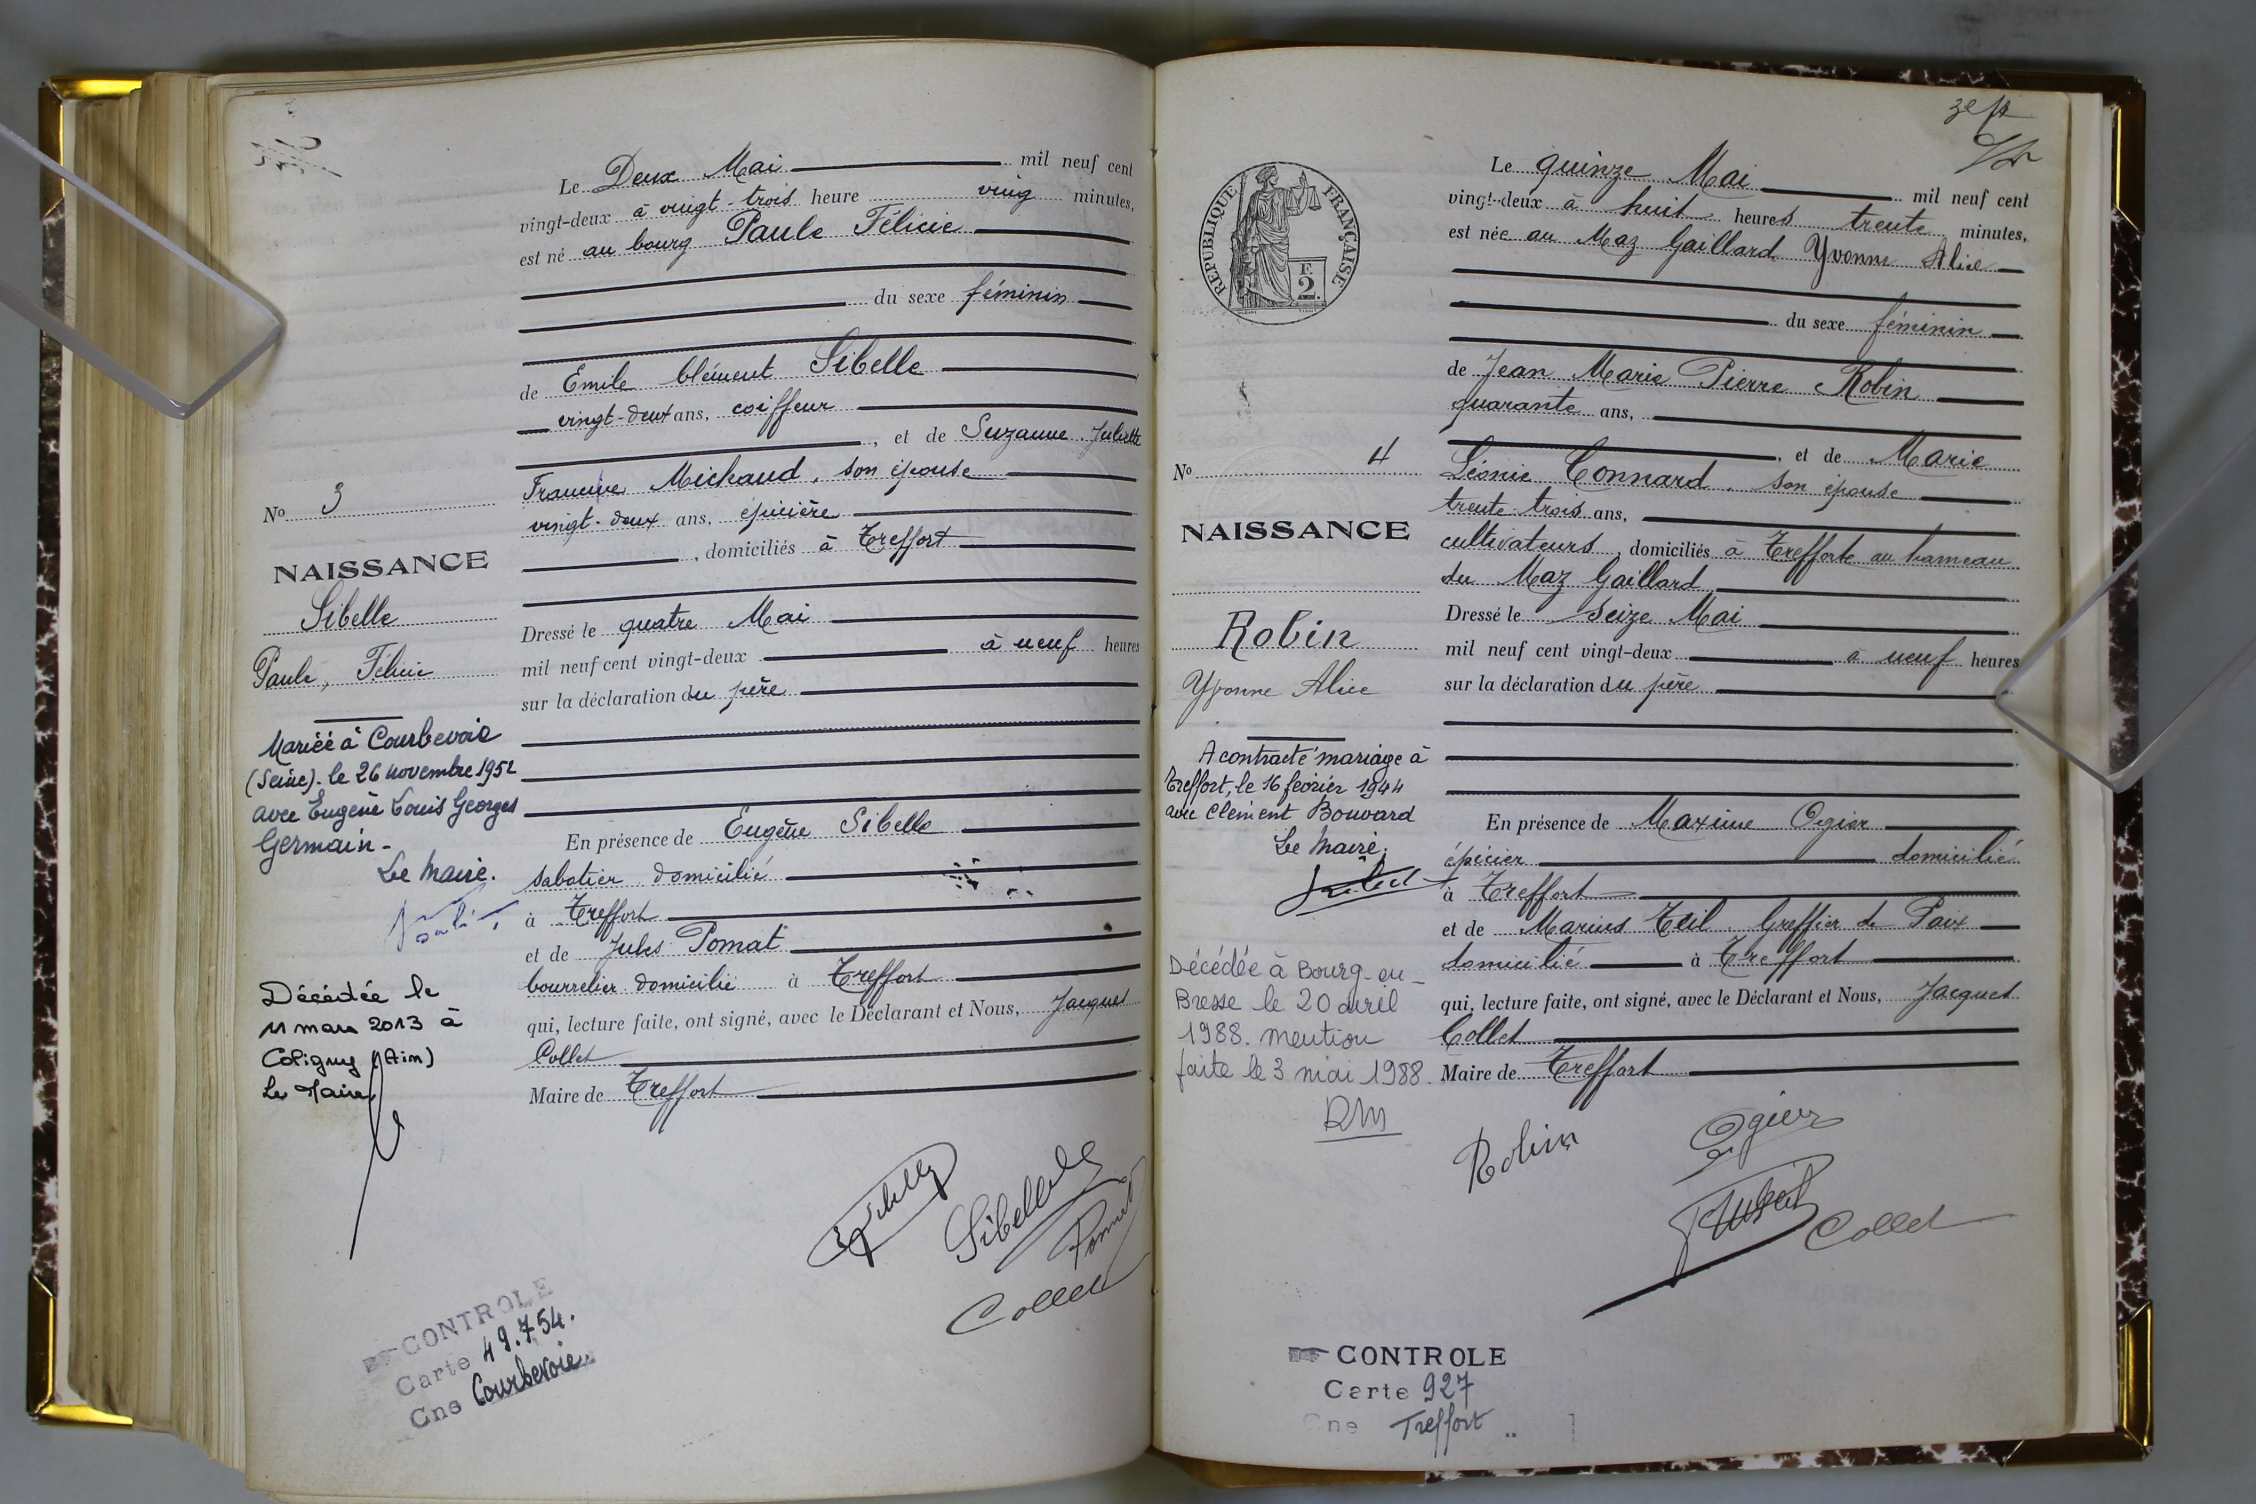 Le Deux Mai mil neuf cent
vingt-deux à vingt-trois heure ving minutes,
est né au bourg Paule Félicie
du sexe féminin
de Emile Clément Sibelle
vingt-deux ans, coiffeur
, et de Suzanne Juliette
Francine Michaud, son épouse
vingt-deux ans, épicière
, domiciliés à Treffort
Dressé le quatre Mai
mil neuf cent vingt-deux à neuf heures
sur la déclaration du père
En présence de Eugène Sibelle
sabotier domicilié
à Treffort
et de Jules Pomat
bourrelier domicilié à Treffort
qui, lecture faite, ont signé, avec le Déclarant et Nous, Jacques
Collet
Maire de Treffort
No 3
NAISSANCE
Sibelle
Paule, Félicie
Mariée à Courbevoie
(Seine). le 26 novembre 1952
avec Eugène Louis Georges
Germain -
Le Maire.
Décédée le
11 mars 2013 à
Coligny (Ain)
Le Maire
Sibelle
Pomat
Collet
CONTROLE
Carte 49.754.
Cne Courbevoie.
Le quinze Mai mil neuf cent
vingt-deux à huit heures trente minutes,
est née au Maz Gaillard Yvonne Alice
du sexe féminin
de Jean Marie Pierre Robin
quarante ans,
, et de Marie
Léonie Connard, son épouse
trente-trois ans,
cultivateurs, domiciliés à Treffort au hameau
du Maz Gaillard
Dressé le seize Mai
mil neuf cent vingt-deux à neuf heures
sur la déclaration du père
En présence de Maxime Ogier
épicier domicilié
à Treffort
et de Marius Teil, Greffier de Paix
domicilié à Treffort
qui, lecture faite, ont signé, avec le Déclarant et Nous, Jacques
Collet
Maire de Treffort
RÉPUBLIQUE FRANÇAISE
F.
2.
No 4
NAISSANCE
Robin
Yvonne Alice
A contracté mariage à
Treffort, le 16 février 1944
avec Clément Bouvard
Le Maire,
Décédée à Bourg-en-
Bresse le 20 avril
1988. mention
faite le 3 mai 1988.
Robin
Ogier
Collet
CONTROLE
Carte 927
Cne Treffort